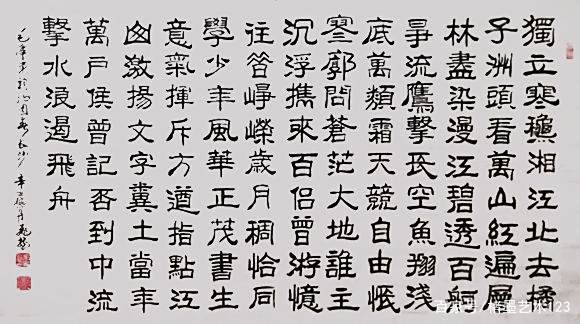 獨立寒穐湘江北去橘
子洲頭看萬山紅遍層
林盡染漫江碧透百舸
爭流鷹擊長空魚翔淺
底萬類霜天競自由悵
寥廓問蒼茫大地誰主
沉浮攜來百侶曾游憶
往昔崢嶸歲月稠恰同
學少年風華正茂書生
意氣揮斥方遒指點江
山激揚文字糞土當年
萬戶侯曾記否到中流
擊水浪遏飛舟
毛澤東詞沁園春長沙